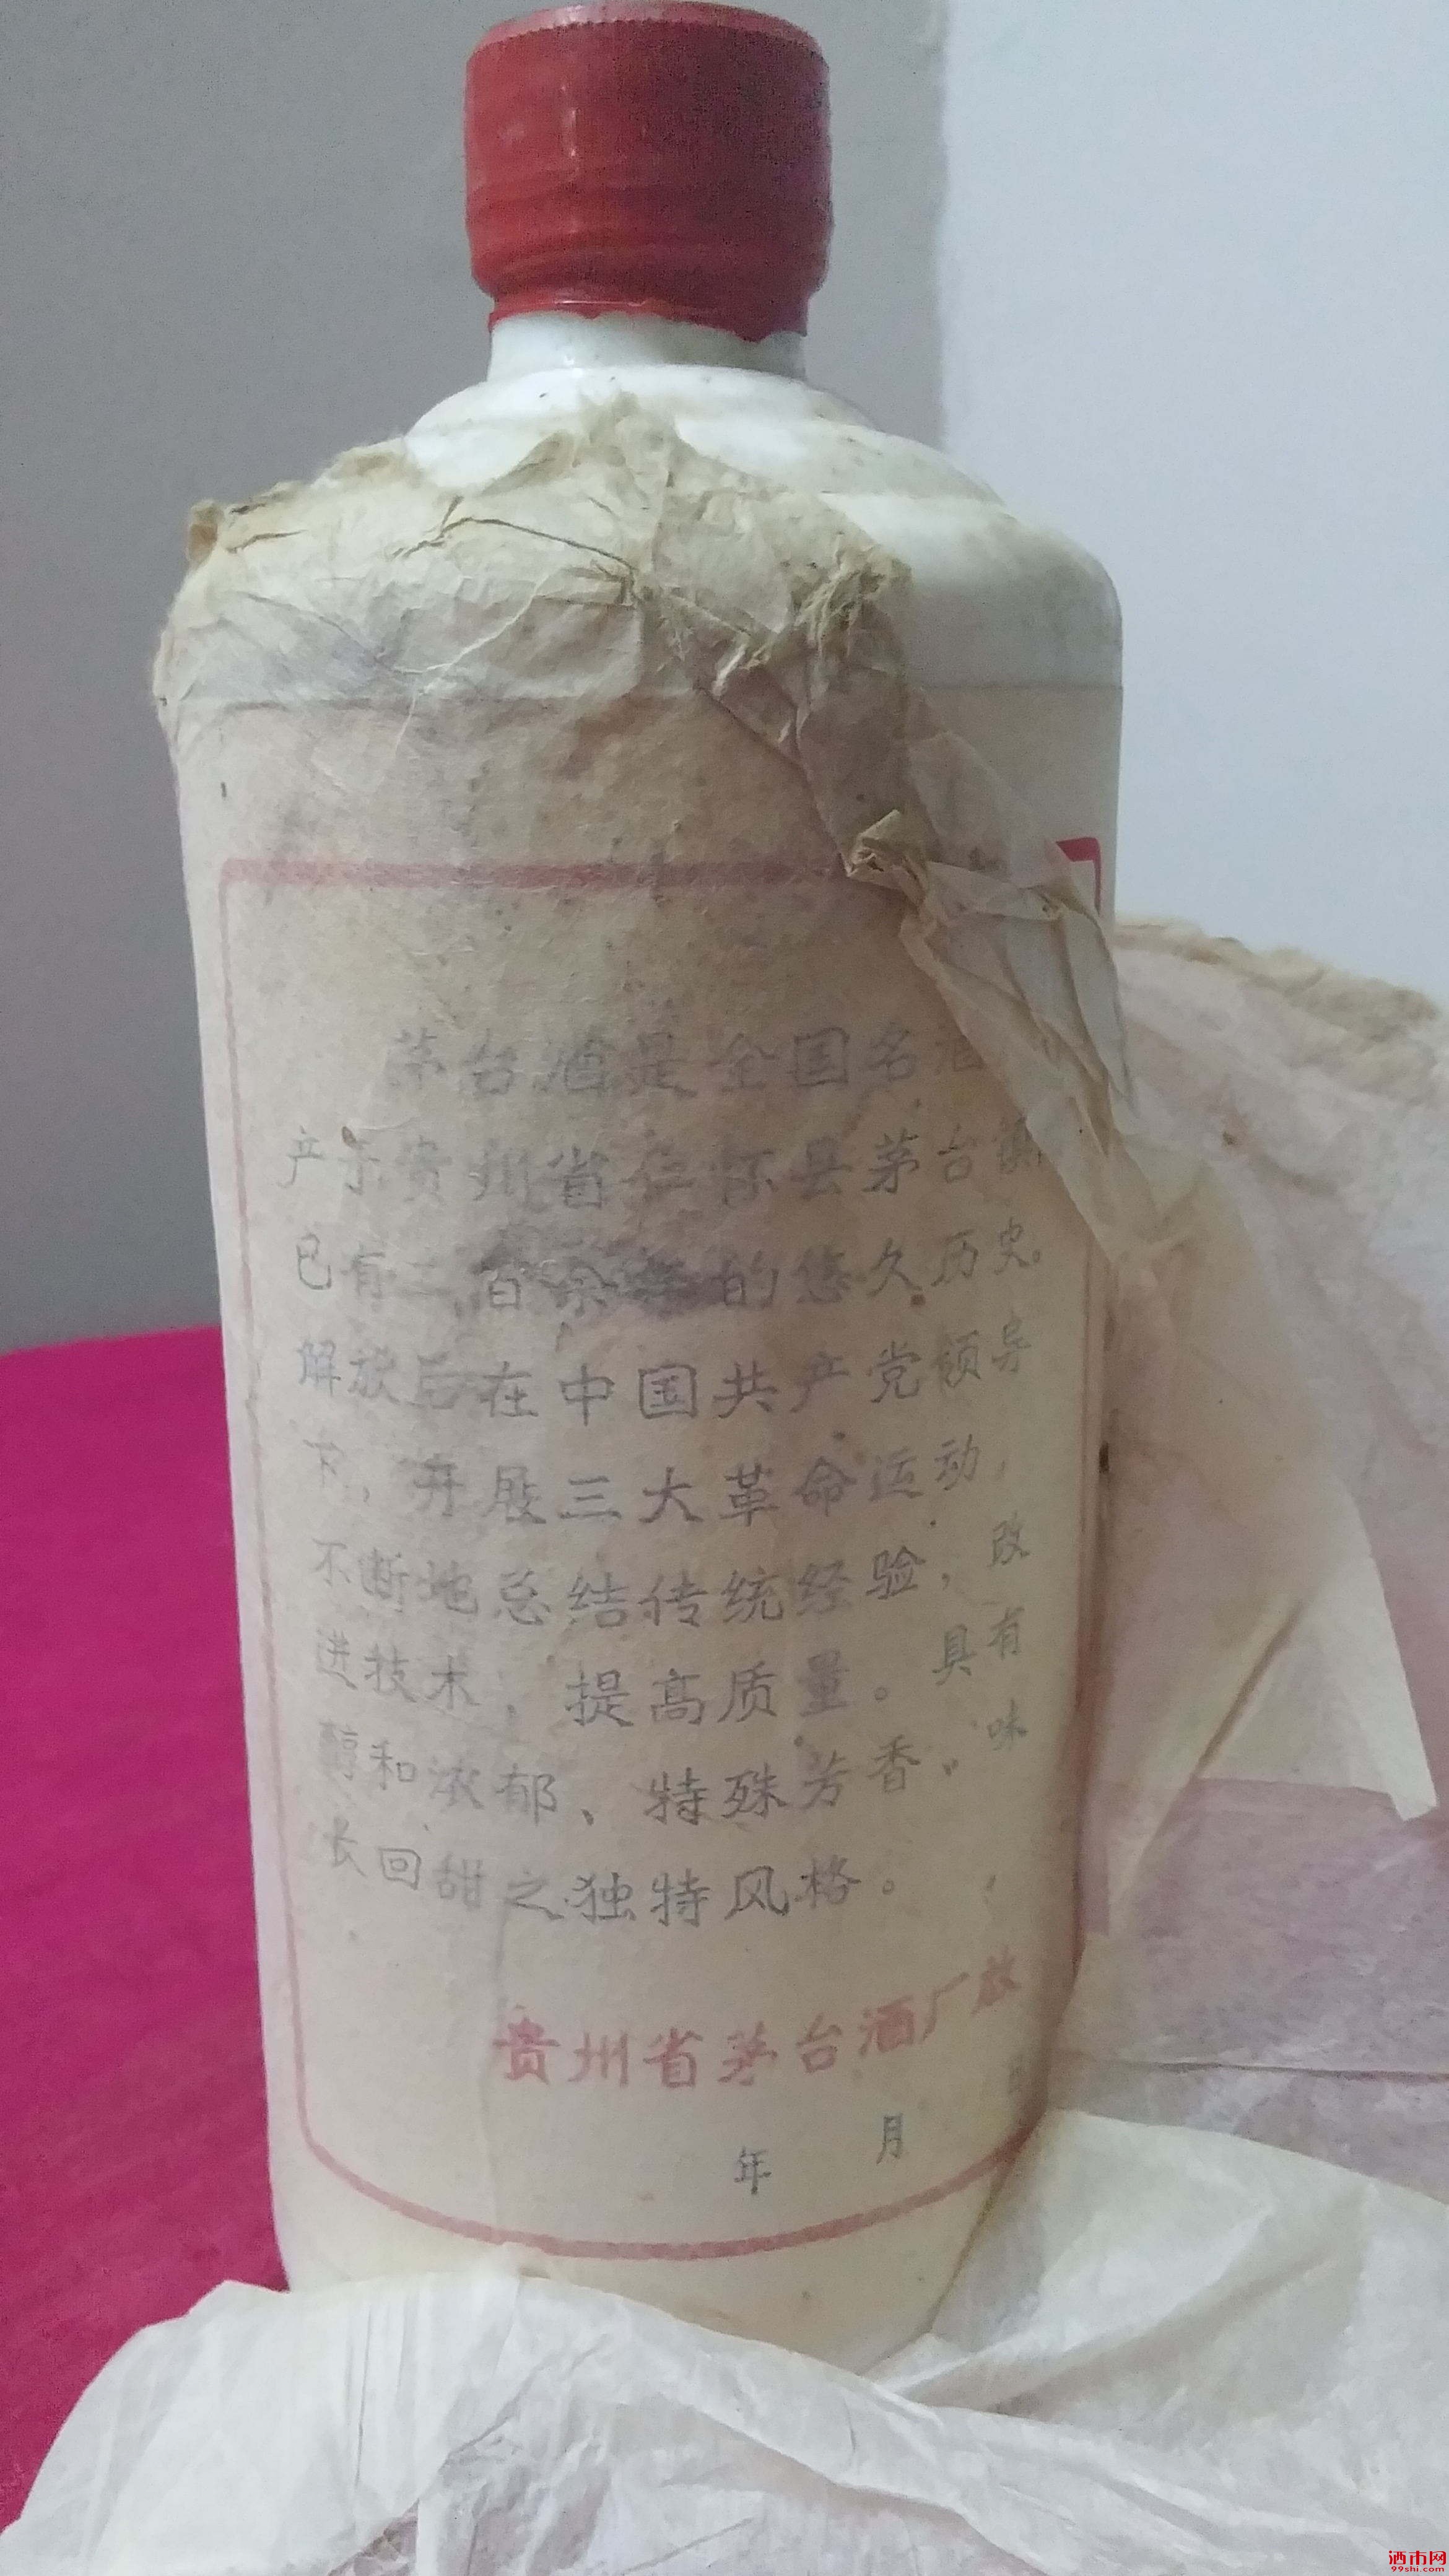 茅台酒是全国名酒
产于贵州省仁怀县茅台镇
已有二百余年的悠久历史。
解放后在中国共产党领导
下，开展三大革命运动，
不断地总结传统经验，改
进技术，提高质量。具有
醇和浓郁、特殊芳香。味
长回甜之独特风格。
贵州省茅台酒厂敬
年 月
酒市网
99shi.com